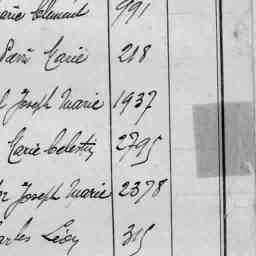 arie Clement 991
Pani Marie 218
l Joseph Marie 1937
Marie Celestin 2795
or Joseph Marie 2378
arles Léon 315